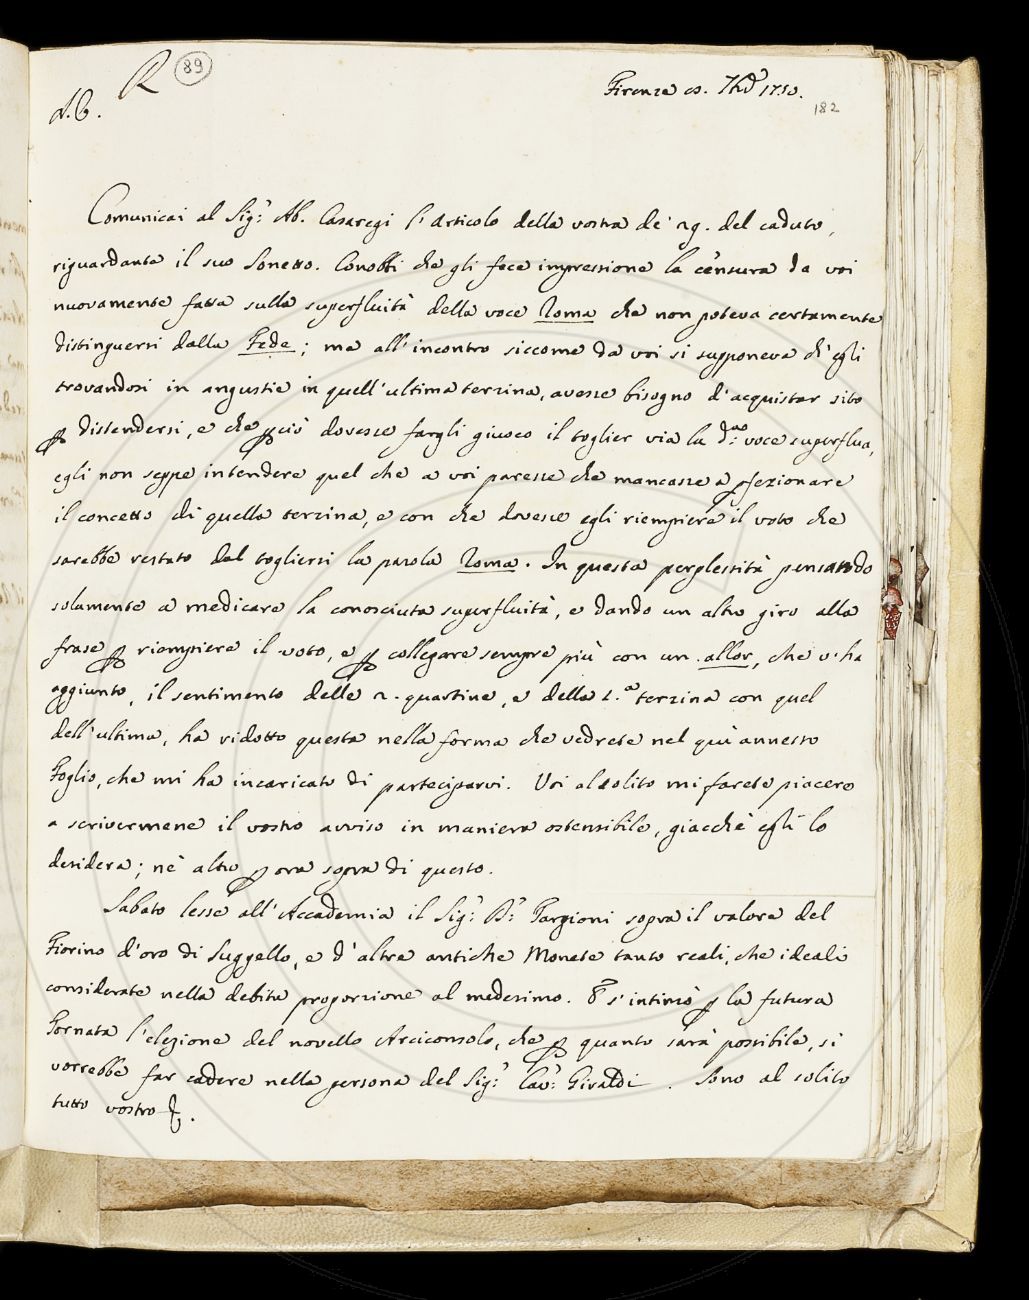 R 89
A. C.
Firenze 7bre 1750.
182
Comunicai al Sig.r Ab. Casaregi l'articolo della vostra de' 29. del caduto,
riguardante il suo Sonetto. Conobbi che gli fece impressione la censura da voi
nuovamente fatta sulla superfluità della voce Roma che non poteva certamente
distinguersi dalla Fede; ma all'incontro siccome da voi si supponeva ch'egli
trovandosi in angustie in quell'ultima terzina, avesse bisogno d'acquistar sito
p distendersi, e che p ciò dovesse fargli giuoco il toglier via la d.a voce superflua,
egli non seppe intendere quel che a voi paresse che mancasse a pfezionare
il concetto di quella terzina, e con che dovesse egli riempiere il voto che
sarebbe restato dal togliersi la parola Roma. In questa perplessità pensando
solamente a medicare la conosciuta superfluità, e dando un altro giro alla
frase p riempiere il voto, e p collegare sempre più con un allor, che v'ha
aggiunto, il sentimento delle 2. quartine, e della 1.a terzina con quel
dell'ultima, ha ridotto questa nella forma che vedrete nel quì annesso
Foglio, che mi ha incaricato di parteciparvi. Voi al solito mi farete piacere
a scrivermene il vostro avviso in maniera ostensibile, giacchè egli lo
desidera; nè altro p ora sopra di questo.
Sabato lesse all'Accademia il Sig.r D.r Targioni sopra il valore del
Fiorino d'oro di Suggello, e d'altre antiche Monete tanto reali, che ideali
considerate nella debita proporzione al medesimo. E s'intimò p la futura
Tornata l'elezione del novello Arciconsolo, che p quanto sarà possibile, si
vorrebbe far cadere nella persona del Sig.r Cav.r Giraldi. Sono al solito
tutto vostro